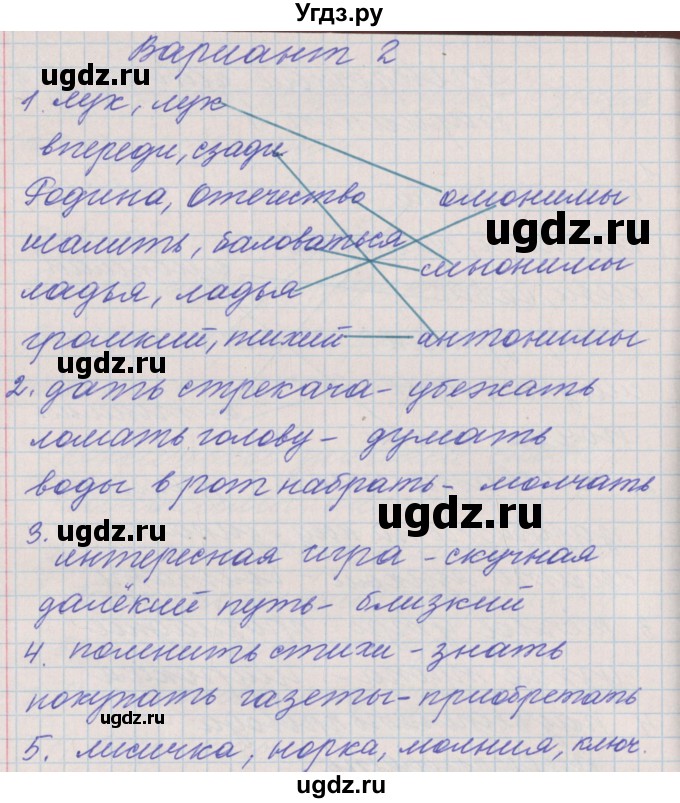 Угдз.ру
Вариант 2
ugdz.ru
1. лук, лук
впереди, сзади
ugdz.ru
Родина, Отечество омонимы
ugdz.ru
шалить, баловаться
синонимы
ладья, ладья
громкий, тихий антонимы
ugdz.ru
2. дать стрекача - убежать
ломать голову - думать
воды в рот набрать - молчать
ugdz.ru
ugdz.ru
3.
интересная игра - скучная
далёкий путь - близкий
4. помнить стихи - знать
покупать газеты - приобретать
ugdz.ru
5. лисичка, норка, молния, ключ.
ugdz.ru
ugdz.ru